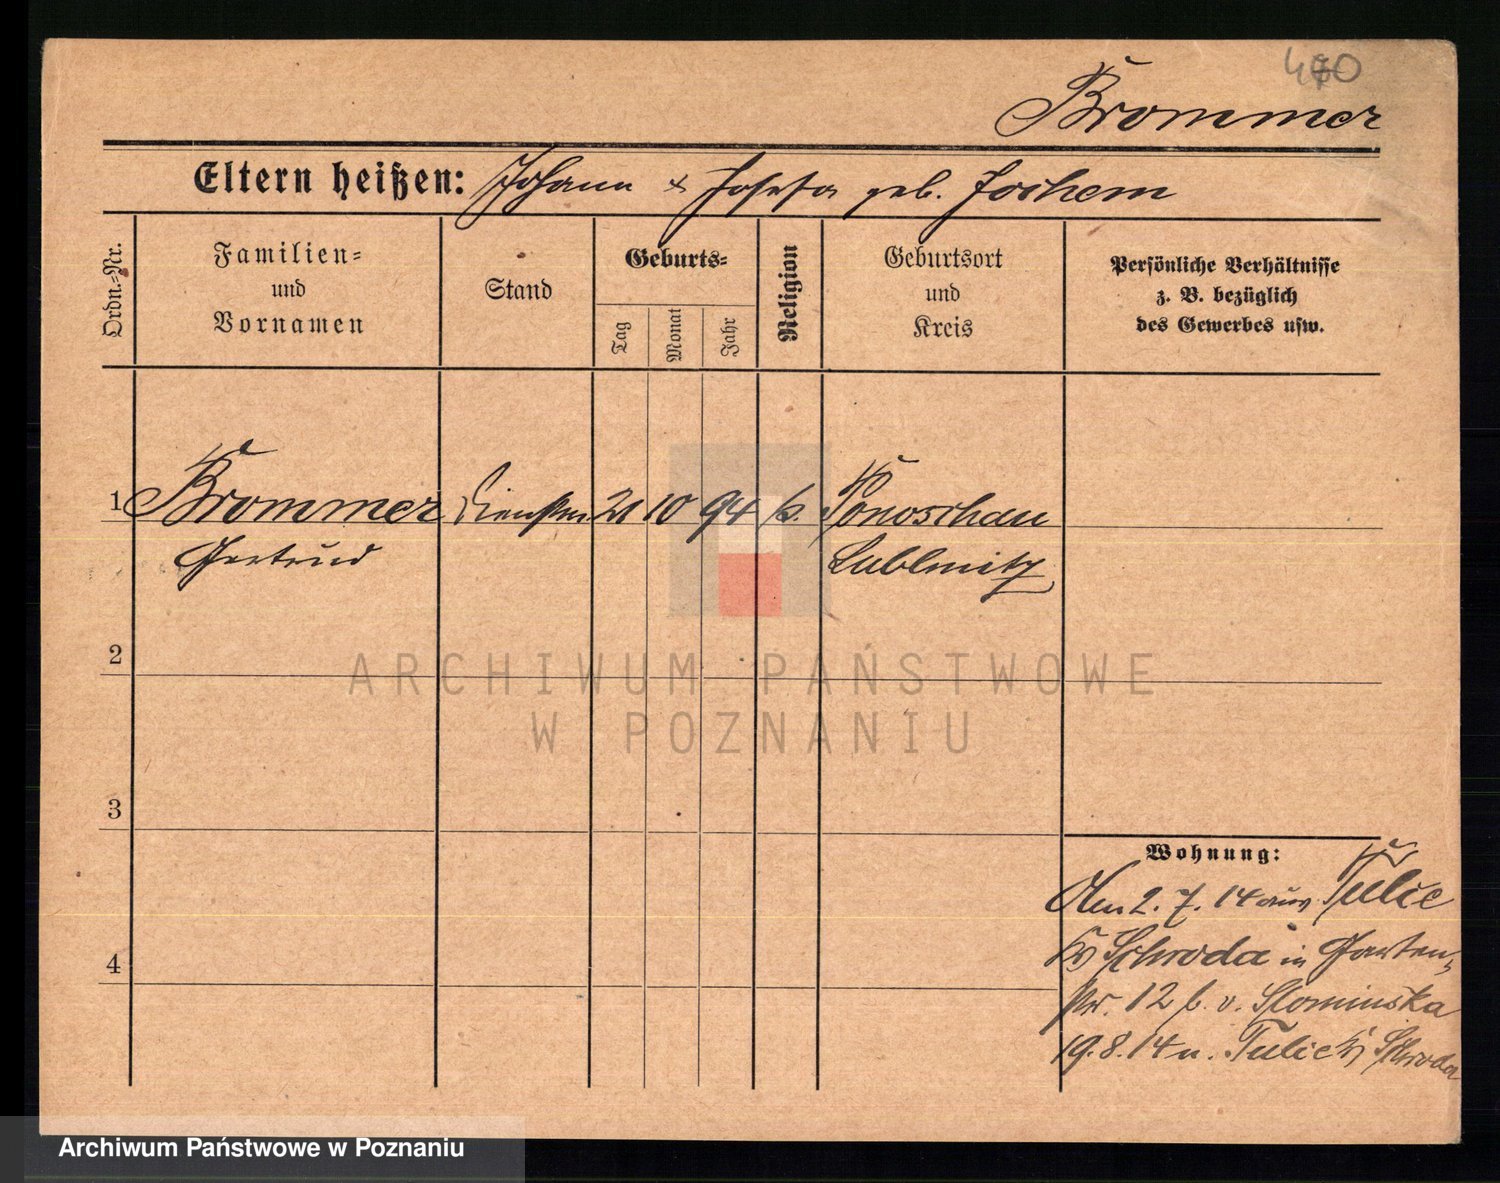 470
Brommer
Eltern heißen: Johann & Josefa geb. Jochem
Ordn.-Nr.
Familien-
und
Vornamen
Stand
Geburts-
Tag
Monat
Jahr
Religion
Geburtsort
und
Kreis
Persönliche Verhältnisse
z. B. bezüglich
des Gewerbes usw.
1 Brommer 21 10 94 k. Ponoschau
Gertrud Lublinitz
2
3
4
Wohnung:
Am 2. 7. 14 aus Tulce
Kr Schroda in Garten-
str. 12 b. v. Slominska
19. 8. 14 n. Tulce Kr Schroda
ARCHIWUM PAŃSTWOWE
W POZNANIU
Archiwum Państwowe w Poznaniu